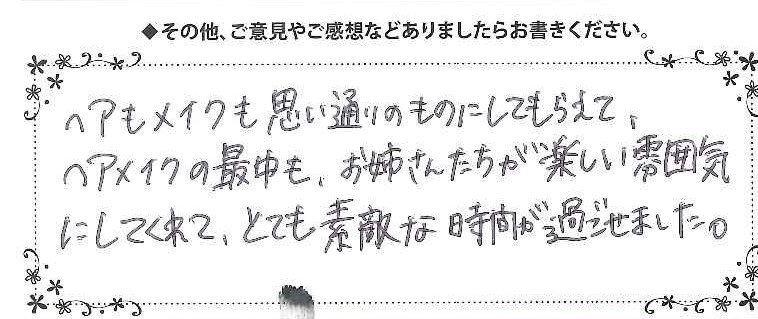 ◆その他、ご意見やご感想などありましたらお書きください。
ヘアもメイクも思い通りのものにしてもらえて、
ヘアメイクの最中も、お姉さんたちが楽しい雰囲気
にしてくれて、とても素敵な時間が過ごせました。